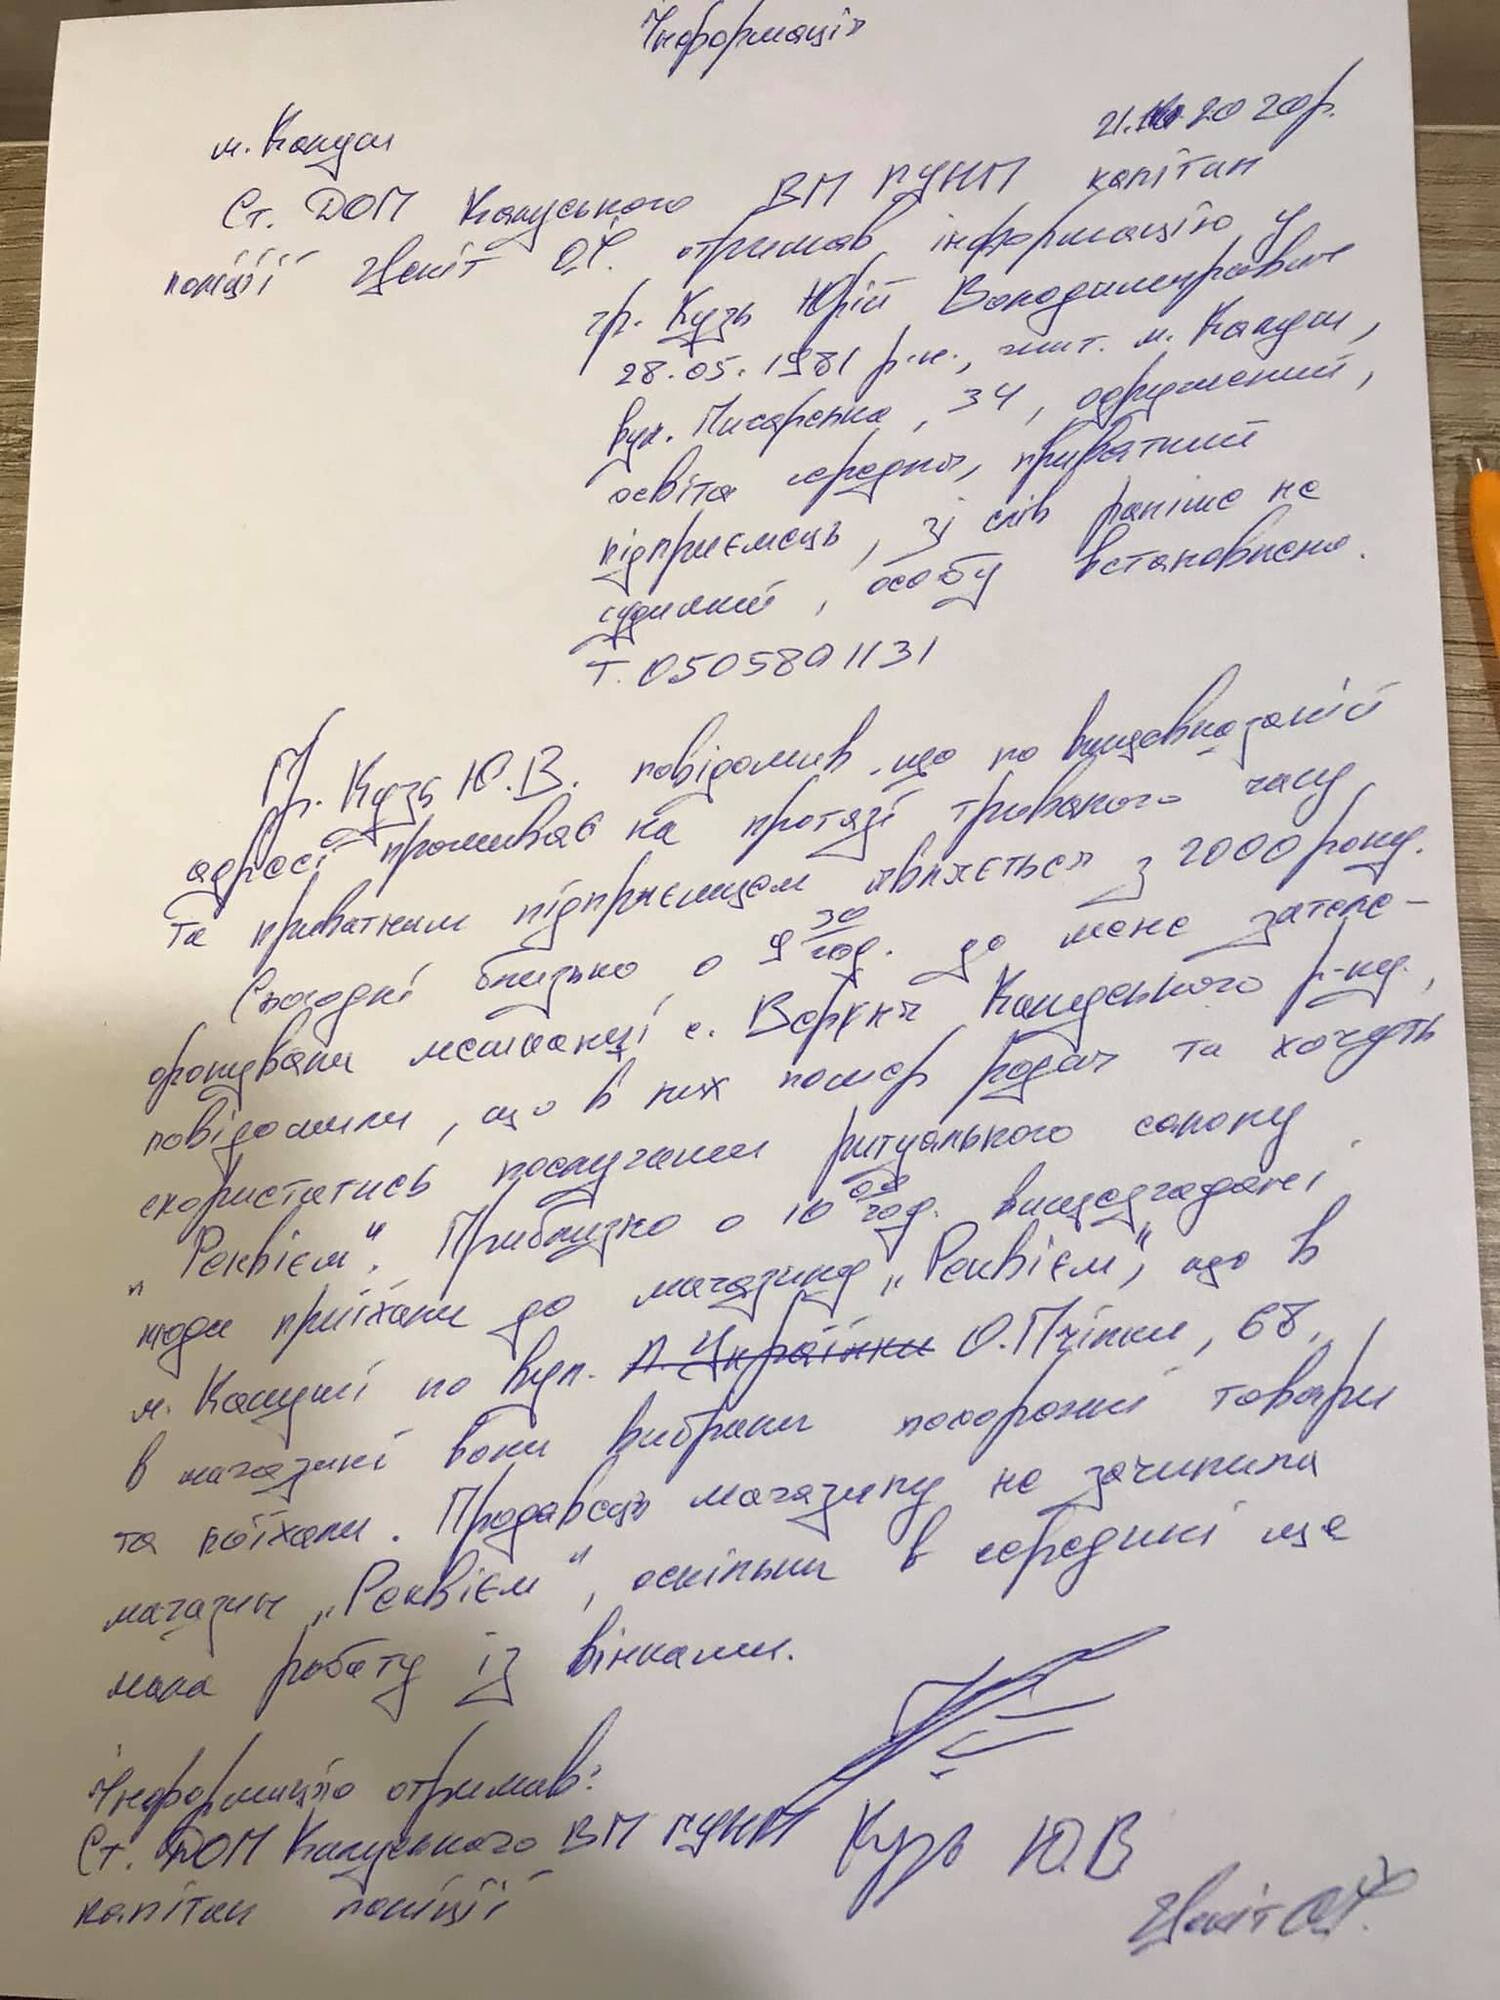 Інформація
м. Калуш 21. 2020р.
Ст. ДОМ Калуського ВП ГУНП капітан
поліції О.Ф. отримав інформацію у
гр. Кузь Юрій Володимирович
28.05.1981 р.н., жит. м. Калуш,
вул. Писарська, 34, одружений,
освіта середня, приватний
підприємець, зі слів раніше не
судимий, особу встановлено.
Т. 0505801131
Гр. Кузь Ю.В. повідомив, що по вищевказаній
адресі проживає на протязі тривалого часу
та приватним підприємцем являється з 2000 року.
Сьогодні близько о 9 30 год. до мене зателе-
фонували мешканці с. Верхня Калуського р-ну,
повідомили, що в них помер родич та хочуть
скористатись послугами ритуального салону
„Реквієм". Приблизно о 10 00 год. вищезгадані
люди приїхали до магазину „Реквієм", що в
м. Калуші по вул. Л. Українки О.Пчілки, 68,
в магазині вони вибрали похоронні товари
та поїхали. Продавець магазину не зачинила
магазин „Реквієм", оскільки в середині ще
мала роботу із вінками.
Інформацію отримав:
Ст. ДОМ Калуського ВП ГУНП Кузь Ю.В
капітан поліції О.Ф.